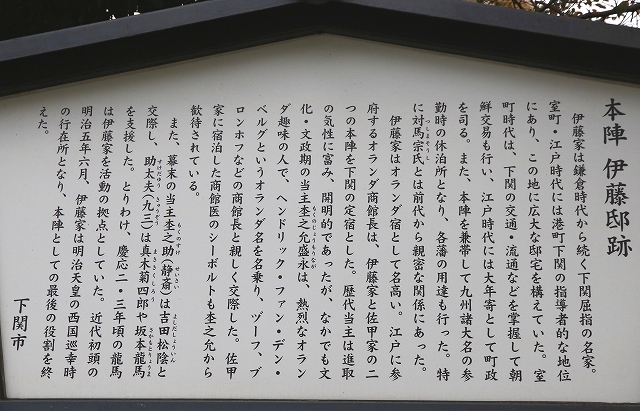 本陣 伊藤邸跡
伊藤家は鎌倉時代から続く下関屈指の名家。
室町・江戸時代には港町下関の指導者的な地位
にあり、この地に広大な邸宅を構えていた。室
町時代は、下関の交通・流通などを掌握して朝
鮮交易も行い、江戸時代には大年寄として町政
を司る。また、本陣を兼帯して九州諸大名の参
勤時の休泊所となり、各藩の用達も行った。特
に対馬宗氏とは前代から親密な関係にあった。
伊藤家はオランダ宿として名高い。江戸に参
府するオランダ商館長は、伊藤家と佐甲家の二
つの本陣を下関の定宿とした。歴代当主は進取
の気性に富み、開明的であったが、なかでも文
化・文政期の当主杢之允盛永は、熱烈なオラン
ダ趣味の人で、ヘンドリック・ファン・デン・
ベルグというオランダ名を名乗り、ヅーフ、ブ
ロンホフなどの商館長と親しく交際した。佐甲
家に宿泊した商館医のシーボルトも杢之允から
歓待されている。
また、幕末の当主杢之助（静斎）は吉田松陰と
交際し、助太夫（九三）は真木菊四郎や坂本龍馬
を支援した。とりわけ、慶応二・三年頃の龍馬
は伊藤家を活動の拠点としていた。近代初頭の
明治五年六月、伊藤家は明治天皇の西国巡幸時
の行在所となり、本陣としての最後の役割を終
えた。
下関市